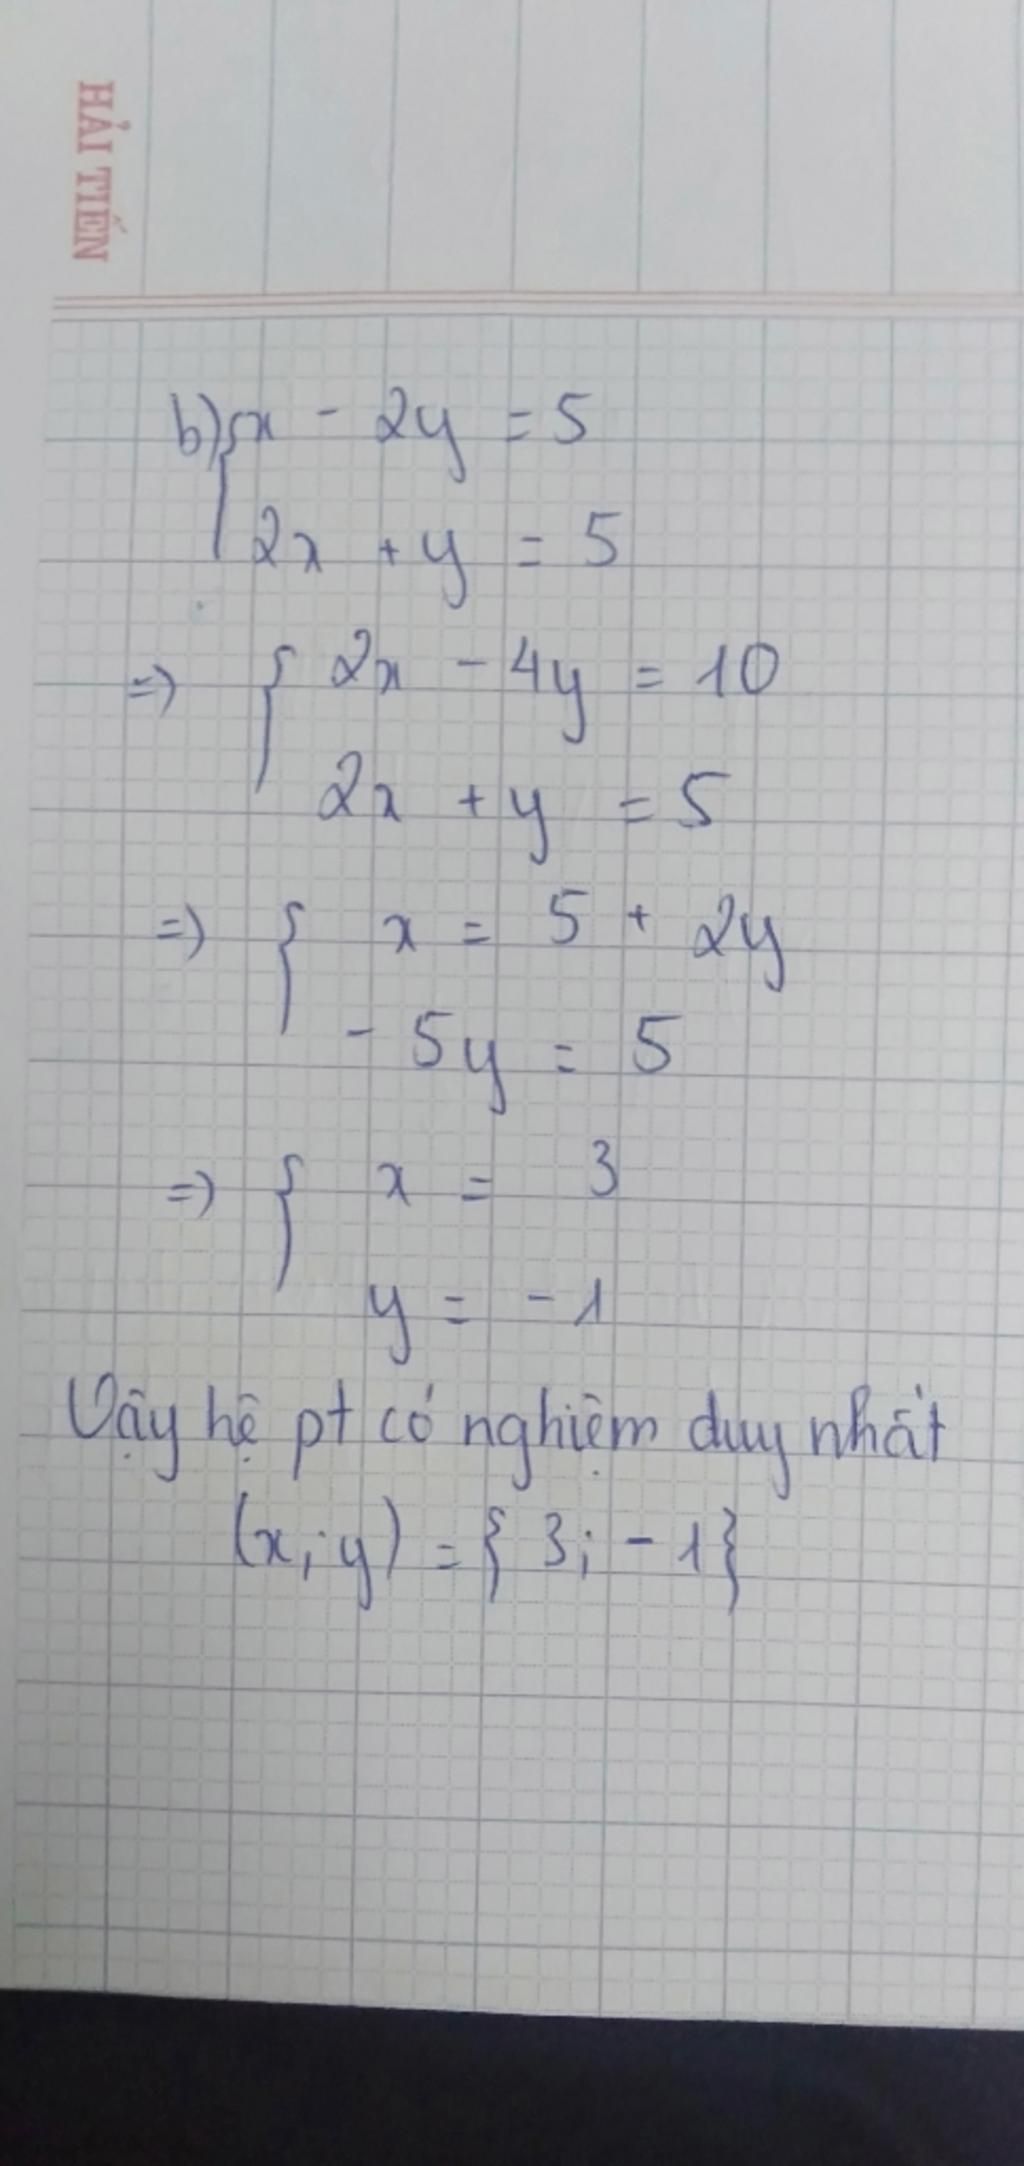 HẢI TIẾN
b) { x - 2y = 5
2x + y = 5
=> { 2x - 4y = 10
2x + y = 5
=> { x = 5 + 2y
- 5y = 5
=> { x = 3
y = - 1
Vậy hệ pt có nghiệm duy nhất
(x; y) = { 3; - 1}